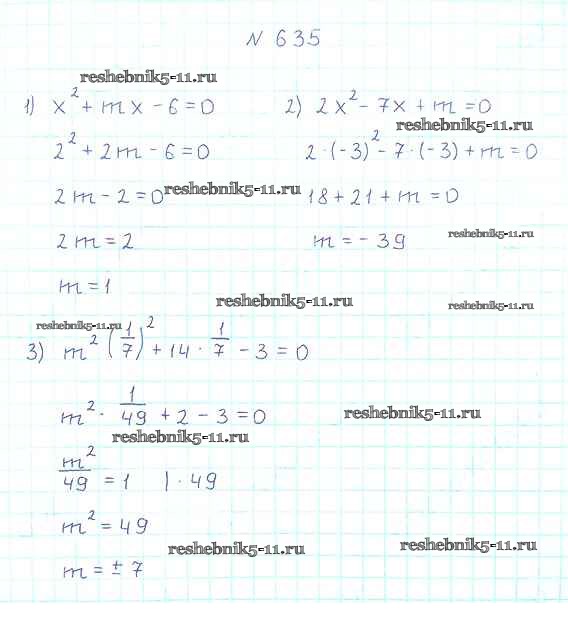 N 635
reshebnik5-11.ru
1) x² + mx - 6 = 0
2² + 2m - 6 = 0
2m - 2 = 0 reshebnik5-11.ru
2m = 2
m = 1
2) 2x² - 7x + m = 0
reshebnik5-11.ru
2·(-3)² - 7·(-3) + m = 0
18 + 21 + m = 0
m = - 39
reshebnik5-11.ru
reshebnik5-11.ru
reshebnik5-11.ru
reshebnik5-11.ru
3) m² (1/7)² + 14 · 1/7 - 3 = 0
m² · 1/49 + 2 - 3 = 0
reshebnik5-11.ru
reshebnik5-11.ru
m²/49 = 1 | · 49
m² = 49
reshebnik5-11.ru
reshebnik5-11.ru
m = ± 7